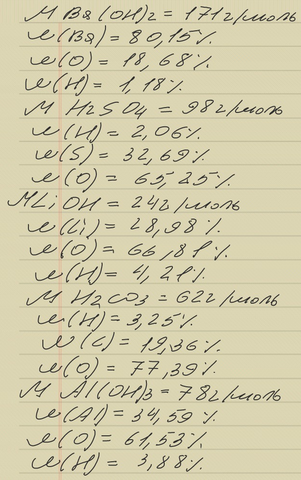 M Ba(OH)2 = 171г/моль
w(Ba) = 80,15%
w(O) = 18,68%
w(H) = 1,18%
M H2SO4 = 98г/моль
w(H) = 2,06%
w(S) = 32,69%
w(O) = 65,25%
M LiOH = 24г/моль
w(Li) = 28,98%
w(O) = 66,81%
w(H) = 4,21%
M H2CO3 = 62г/моль
w(H) = 3,25%
w(C) = 19,36%
w(O) = 77,39%
M Al(OH)3 = 78г/моль
w(Al) = 34,59%
w(O) = 61,53%
w(H) = 3,88%